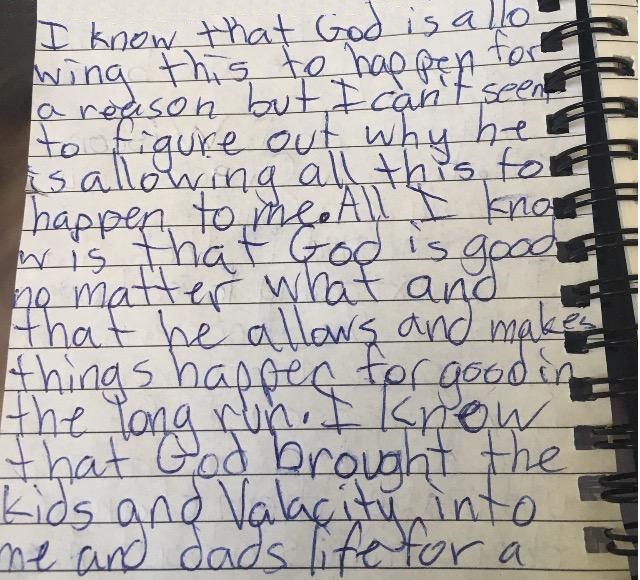 I know that God is allo
wing this to happen for
a reason but I can't seem
to figure out why he
is allowing all this to
happen to me. All I kno
w is that God is good
no matter what and
that he allows and makes
things happen for good in
the long run. I know
that God brought the
kids and Valacity into
me and dads life for a